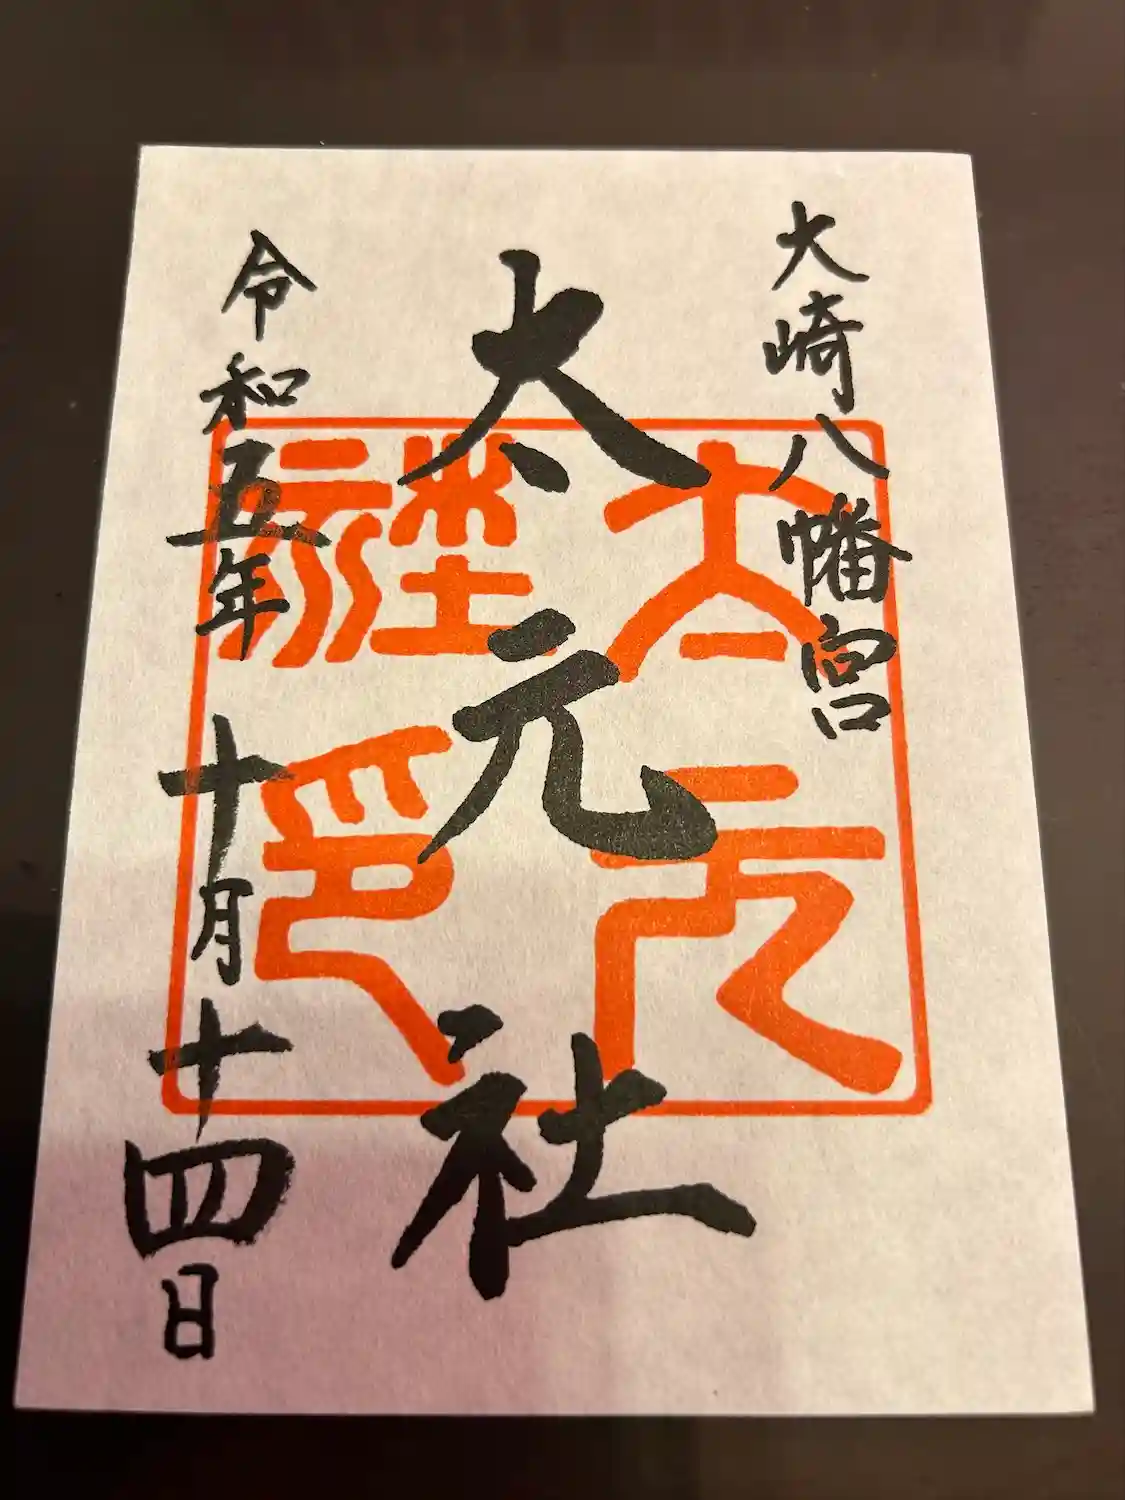 大崎八幡宮
太元社
令和五年十月十四日
太元
社印